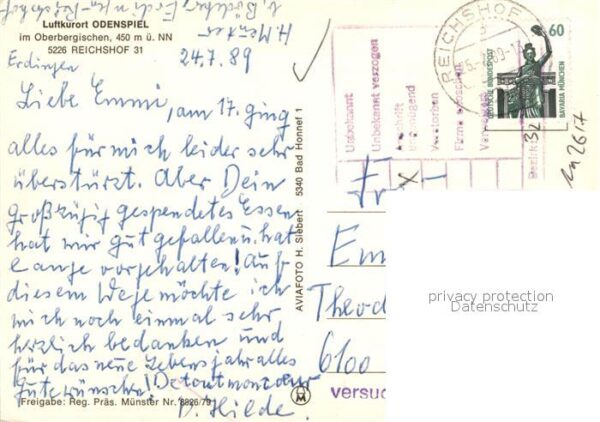 Luftkurort ODENSPIEL
im Oberbergischen, 450 m ü. NN
5226 REICHSHOF 31
24.7.89
Liebe Emmi, am 17. ging
alles für mich leider sehr
überstürzt. Aber Dein
großzügig gespendetes Essen
hat mir gut gefallen u. hat
lange vorgehalten! Auf
diesem Wege möchte ich
mich noch einmal sehr
herzlich bedanken und
für das neue Lebensjahr alles
Gute wünschen!
D. Hilde.
Freigabe: Reg. Präs. Münster Nr. 8826/79
AVIAFOTO H. Siebert 5340 Bad Honnef 1
Unbekannt
Unbekannt verzogen
Anschrift
ungenügend
Verstorben
Firma erloschen
REICHSHOF
60
DEUTSCHE BUNDESPOST
BAVARIA MÜNCHEN
32
Fr
Em
Theod
6100
versuc
privacy protection
Datenschutz